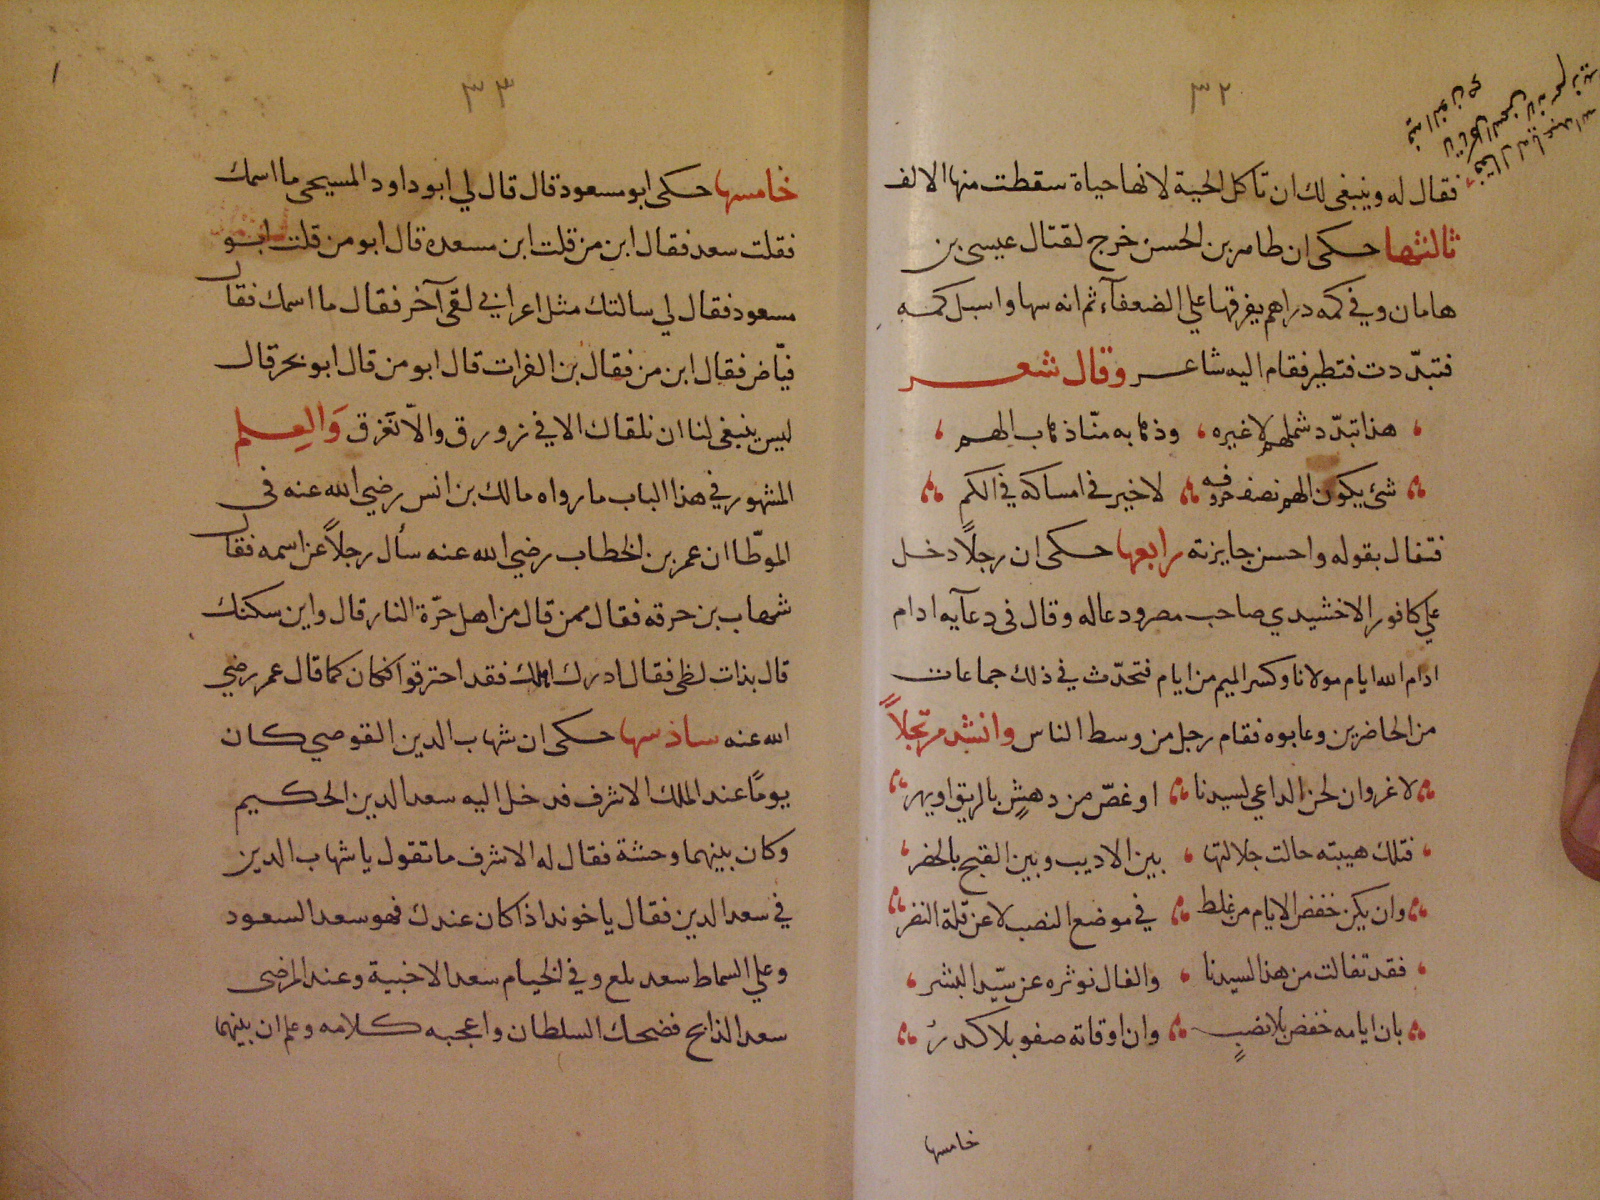 ٣٢
فقال له وينبغى لك ان تاكل الحية لانها حياة سقطت منها الالف
ثالثها حكى ان طاهر بن الحسن خرج لقتال عيسى بن
هامان وفي كمه دراهم يفرقها علي الضعفآء ثم انه سها واسبل كمه
فتبدّدت فتطير فقام اليه شاعر وقال شعر
هذا تبدّد شملهم لا غيره وذهابه منّا ذهاب الهم
شئ يكون الهم نصف حروفه لا خير في امساكه في الكم
فتفال بقوله واحسن جايزته رابعها حكى ان رجلاً دخل
علي كافور الاخشيدي صاحب مصر ودعا له وقال فى دعآيه ادام
ادام الله ايام مولانا وكسر الميم من ايام فتحدّث في ذلك جماعات
من الحاضرين وعابوه فقام رجل من وسط الناس وانشد مرتجلاً
لا غرو ان لحن الداعي لسيدنا او غصّ من دهشٍ بالريق او بهر
فتلك هيبته حالت جلالتها بين الاديب وبين القبح بالحضر
وان يكن خفض الايام من غلط في موضع النصب لا عن قلة النظر
فقد تفالت من هذا لسيدنا والفال نوثره عن سيّد البشر
بان ايامه خفض بلا نصبٍ وان اوقاته صفو بلا كدر
خامسها
٣٣
خامسها حكى ابو مسعود قال قال لي ابو داود المسيحى ما اسمك
فقلت سعد فقال ابن من قلت ابن مسعده قال ابو من قلت ابو
مسعود فقال لي سالتك مثل اعرابي لقى آخر فقال ما اسمك فقال
فيّاض فقال ابن من فقال بن الفرات قال ابو من قال ابو بحر قال
ليس ينبغى لنا ان نلقاك الا في زورق والّا نَغرق وَالعِلم
المشهور في هذا الباب ما رواه مالك بن انس رضي الله عنه فى
الموطّا ان عمر بن الخطاب رضي الله عنه سأل رجلاً عن اسمه فقال
شهاب بن حرقه فقال ممن قال من اهل حرّة النار قال واين سكنك
قال بذات لظى فقال ادرك اهلك فقد احترقوا فكان كما قال عمر رضي
الله عنه سادسها حكى ان شهاب الدين القوصي كان
يومًا عند الملك الاشرف فدخل اليه سعد الدين الحكيم
وكان بينهما وحشة فقال له الاشرف ما تقول يا شهاب الدين
في سعد الدين فقال يا خوند اذا كان عندك فهو سعد السعود
وعلي السماط سعد بلع وفي الخيام سعد الاخبية وعند المرضى
سعد الذابح فضحك السلطان واعجبه كلامه وعلم ان بينهما